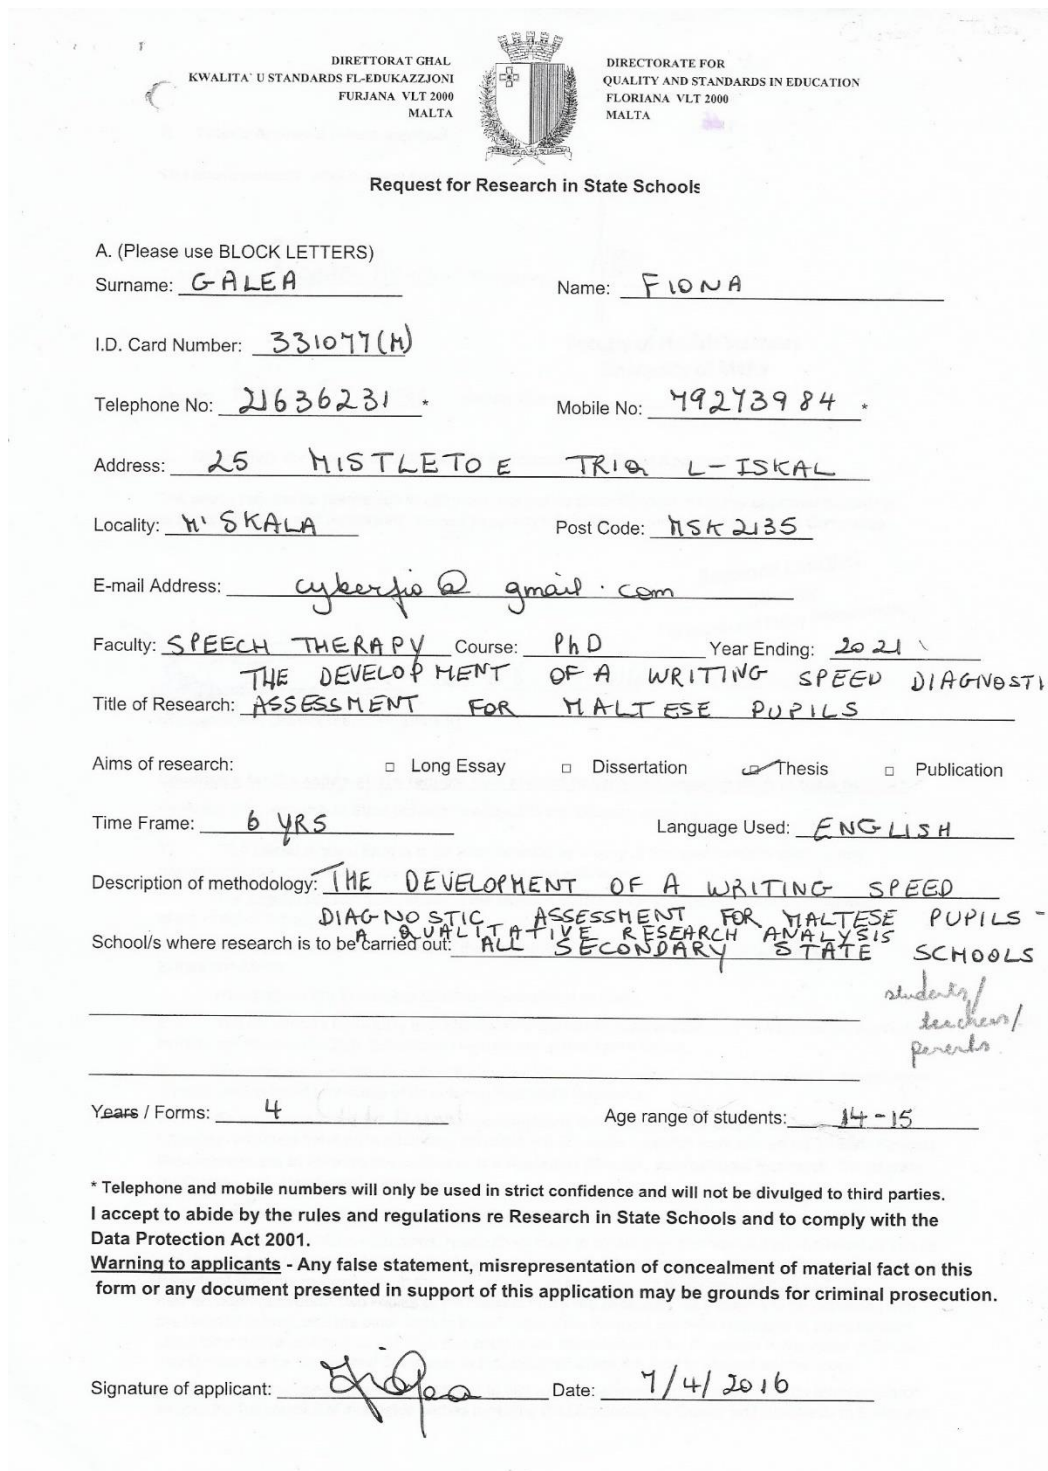 DIRETTORAT GHAL
KWALITA` U STANDARDS FL-EDUKAZZJONI
FURJANA VLT 2000
MALTA
DIRECTORATE FOR
QUALITY AND STANDARDS IN EDUCATION
FLORIANA VLT 2000
MALTA
Request for Research in State Schools
A. (Please use BLOCK LETTERS)
Surname: GALEA Name: FIONA
I.D. Card Number: 331077(M)
Telephone No: 21636231 * Mobile No: 79273984 *
Address: 25 MISTLETOE TRIQ L-ISKAL
Locality: M'SKALA Post Code: MSK 2135
E-mail Address: cyberfio@gmail.com
Faculty: SPEECH THERAPY Course: PhD Year Ending: 2021
THE DEVELOPMENT OF A WRITING SPEED DIAGNOSTI
Title of Research: ASSESSMENT FOR MALTESE PUPILS
Aims of research: □ Long Essay □ Dissertation □ Thesis □ Publication
Time Frame: 6 YRS Language Used: ENGLISH
Description of methodology: THE DEVELOPMENT OF A WRITING SPEED
DIAGNOSTIC ASSESSMENT FOR MALTESE PUPILS -
A QUALITATIVE RESEARCH ANALYSIS
School/s where research is to be carried out: ALL SECONDARY STATE SCHOOLS
students/
teachers/
parents
Years / Forms: 4 Age range of students: 14-15
* Telephone and mobile numbers will only be used in strict confidence and will not be divulged to third parties.
I accept to abide by the rules and regulations re Research in State Schools and to comply with the
Data Protection Act 2001.
Warning to applicants - Any false statement, misrepresentation of concealment of material fact on this
form or any document presented in support of this application may be grounds for criminal prosecution.
Signature of applicant: Date: 7/4/2016